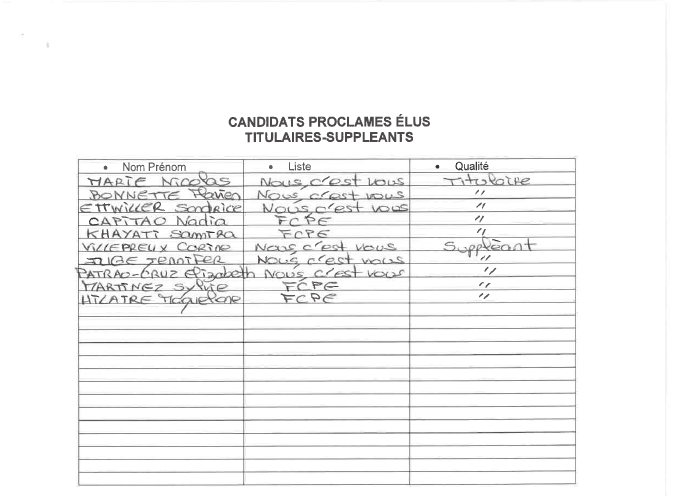 CANDIDATS PROCLAMES ÉLUS
TITULAIRES-SUPPLEANTS
• Nom Prénom • Liste • Qualité
MARIE Nicolas Nous, c'est vous Titulaire
BONNETTE Flavien Nous c'est vous "
ETTWILLER Sandrice Nous c'est vous "
CAPITAO Nadia FCPE "
KHAYATI Samira FCPE "
VILLEPREUX Corine Nous c'est vous Suppléant
JUGE JENNIFER Nous c'est vous "
PATRAO-CRUZ Elizabeth Nous c'est vous "
MARTINEZ Sylvie FCPE "
HILAIRE FCPE "